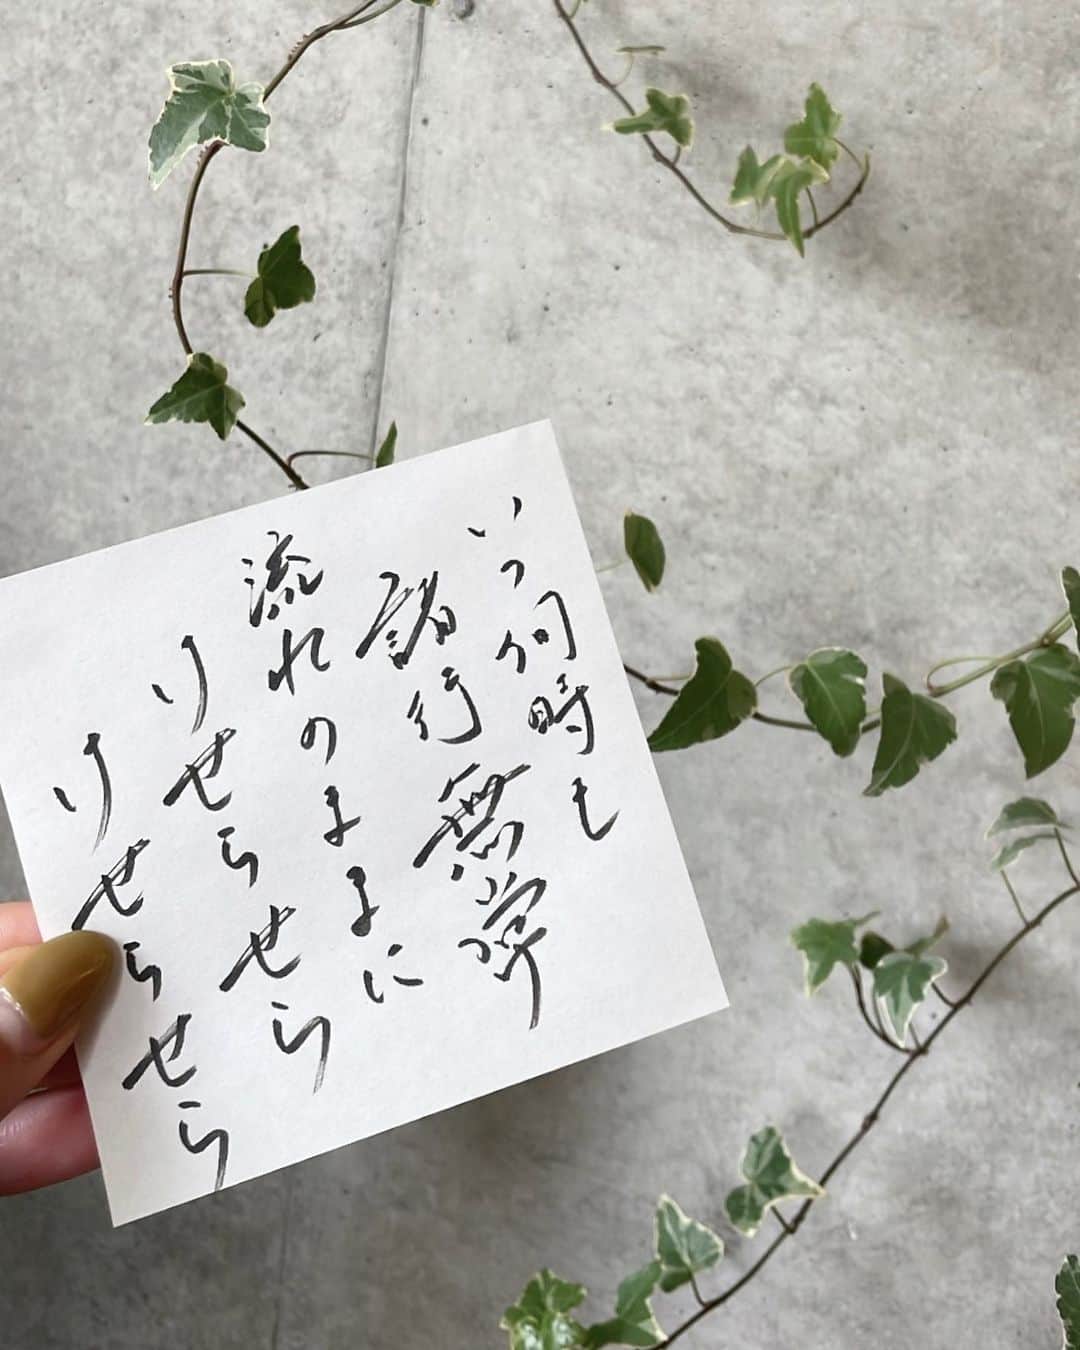 いつ何時も
諸行無常
流れのままに
けせらせら
けせらせら